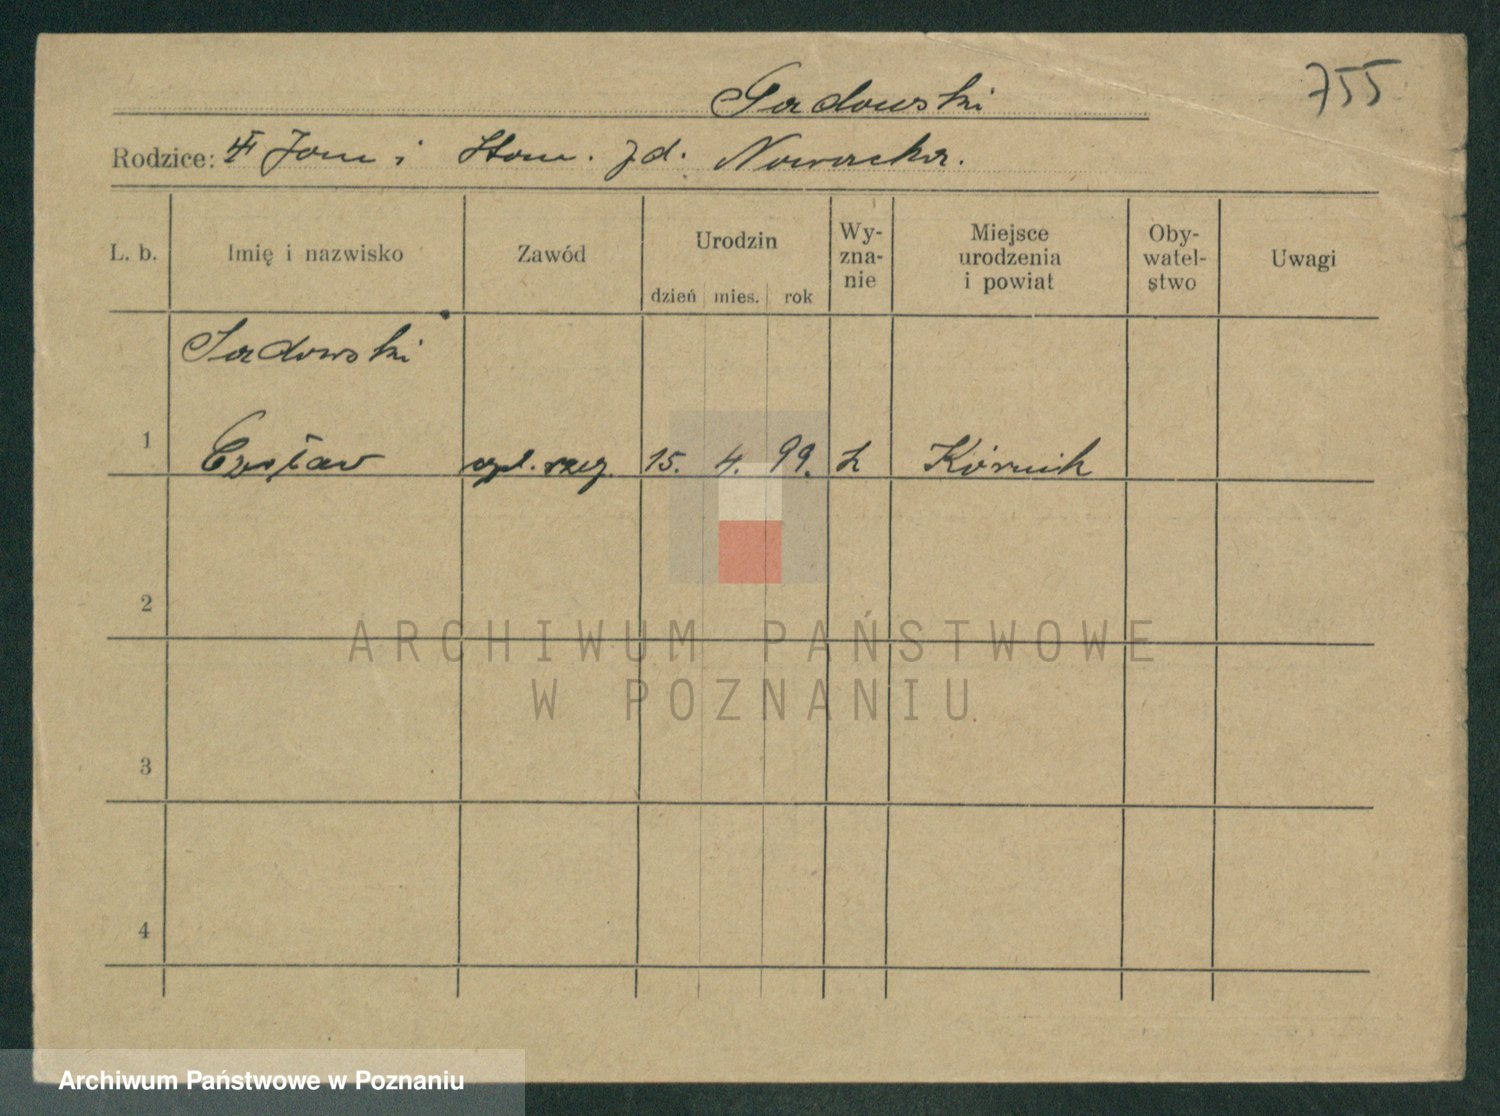 755
Sadowski
Rodzice: Jan i Stan. zd. Nowacka.
L. b. Imię i nazwisko Zawód Urodzin dzień mies. rok Wy-zna-nie Miejsce urodzenia i powiat Oby-watel-stwo Uwagi
Sadowski
1 Czesław szeg. 15. 4. 99. k Kórnik
2
3
4
ARCHIWUM PAŃSTWOWE
W POZNANIU
Archiwum Państwowe w Poznaniu